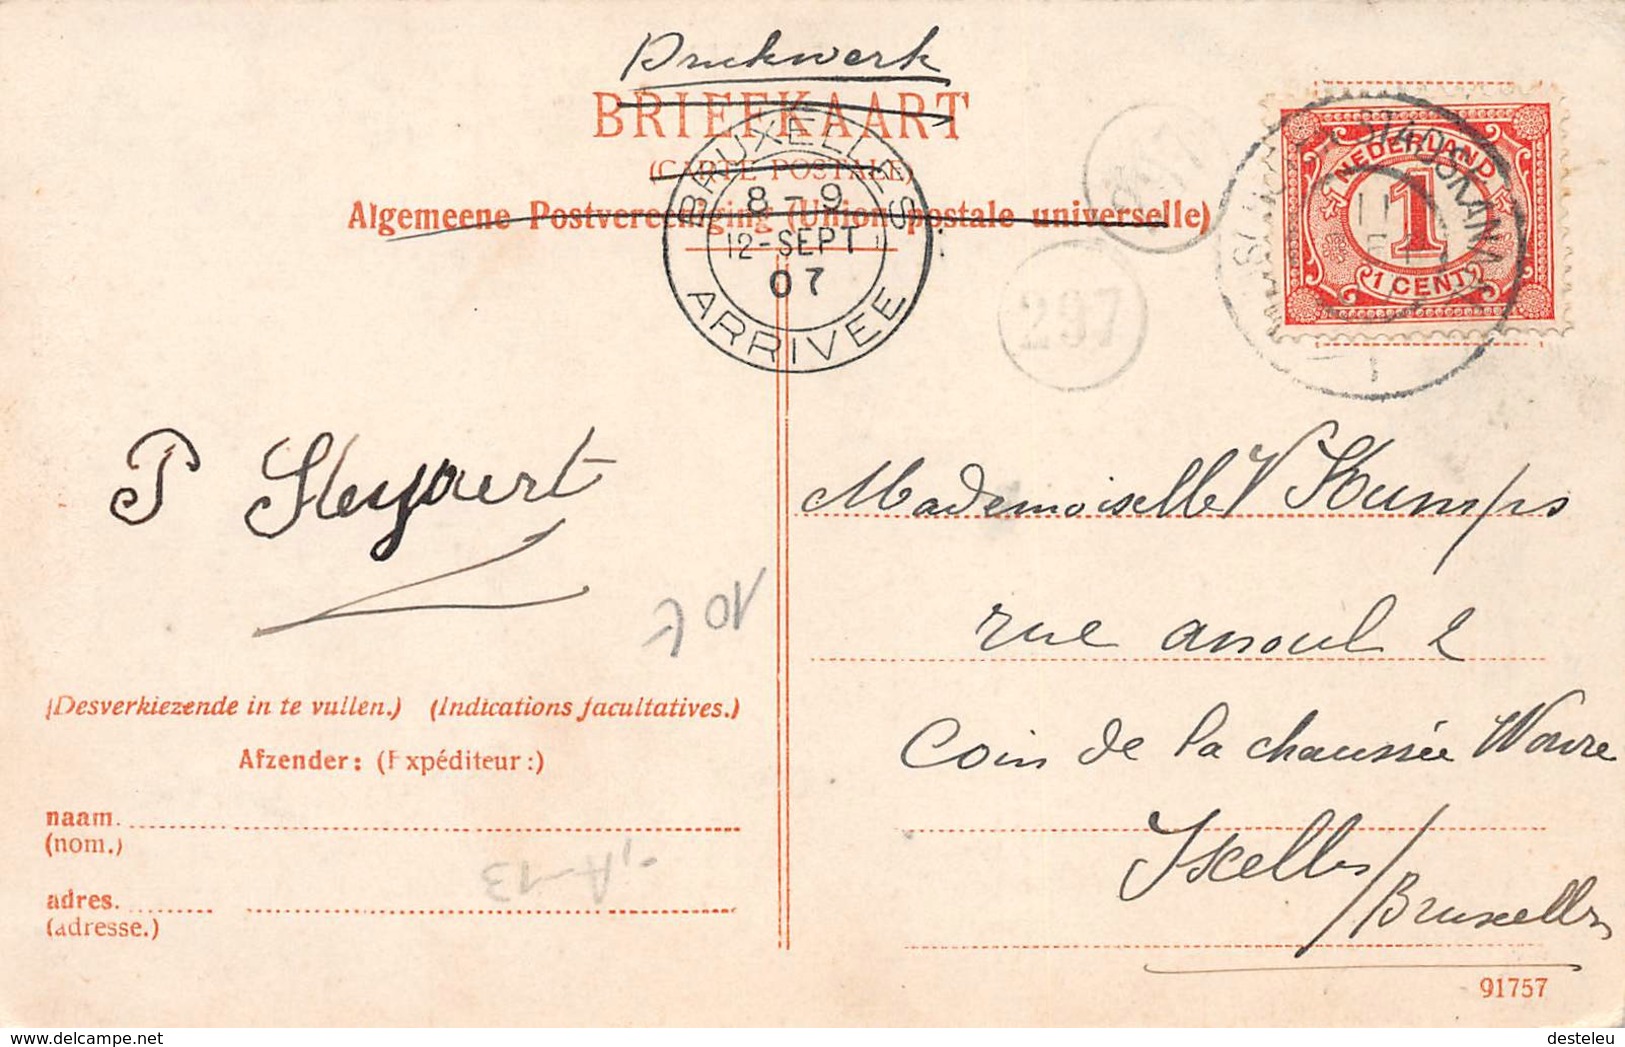 Drukwerk
BRIEFKAART
(CARTE POSTALE)
Algemeene Postvereeniging (Union postale universelle)
BRUXELLES
8-9
12-SEPT
07
ARRIVEE
297
NEDERLAND
1
1 CENT
STADSKANAAL
P Steyaert
Mademoiselle V Kumps
rue anoul 2
Coin de la chaussée Wavre
Ixelles/Bruxelles
10€
(Desverkiezende in te vullen.) (Indications facultatives.)
Afzender: (Expéditeur:)
naam.
(nom.)
adres.
(adresse.)
A-13
91757
delcampe.net
desteleu